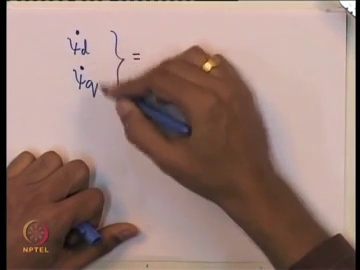 ψ̇d } =
ψ̇q
NPTEL